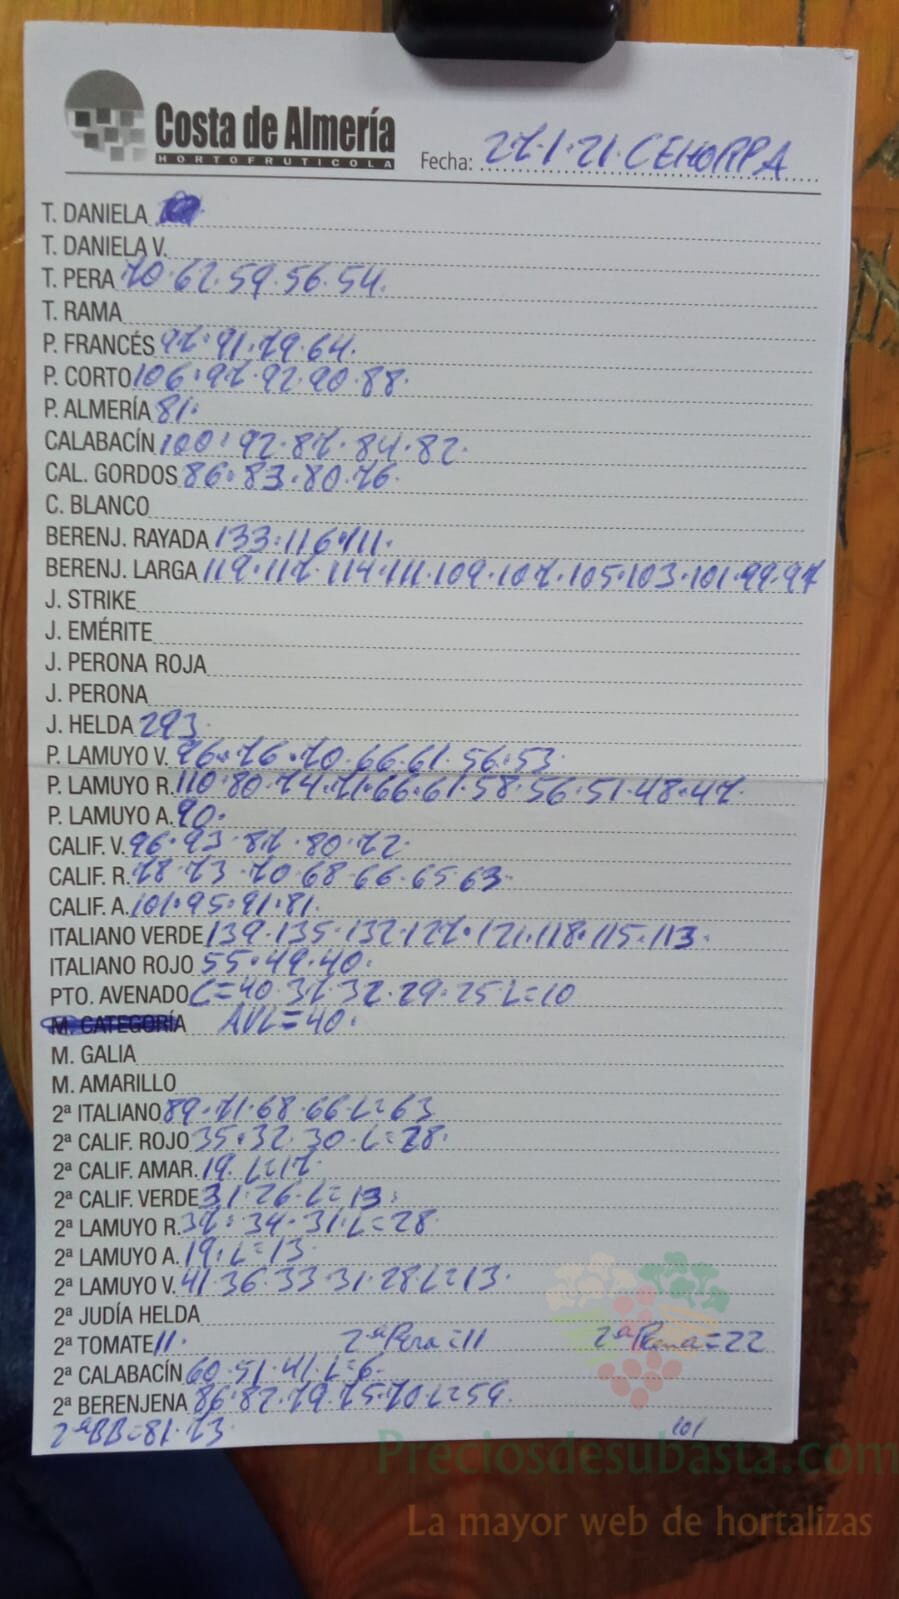 Costa de Almería
HORTOFRUTICOLA
Fecha: 27·1·21·CEHORPA
T. DANIELA
T. DANIELA V.
T. PERA 70·62·59·56·54·
T. RAMA
P. FRANCÉS 97·91·79·64·
P. CORTO 106·97·92·90·88·
P. ALMERÍA 81·
CALABACÍN 100·92·87·84·82·
CAL. GORDOS 86·83·80·76·
C. BLANCO
BERENJ. RAYADA 133·116·111·
BERENJ. LARGA 119·117·114·111·109·107·105·103·101·99·97
J. STRIKE
J. EMÉRITE
J. PERONA ROJA
J. PERONA
J. HELDA 293·
P. LAMUYO V. 96·76·70·66·61·56·53·
P. LAMUYO R. 110·80·74·71·66·61·58·56·51·48·47·
P. LAMUYO A. 90·
CALIF. V. 96·93·87·80·72·
CALIF. R. 78·73·70·68·66·65·63·
CALIF. A. 101·95·91·81·
ITALIANO VERDE 139·135·132·127·121·118·115·113·
ITALIANO ROJO 55·49·40·
PTO. AVENADO C=40·37·32·29·25 L=10
M. CATEGORÍA AVL=40·
M. GALIA
M. AMARILLO
2ª ITALIANO 89·71·68·66·L=63
2ª CALIF. ROJO 35·32·30·L=28·
2ª CALIF. AMAR. 19·L=17·
2ª CALIF. VERDE 31·26·L=13·
2ª LAMUYO R. 37·34·31·L=28·
2ª LAMUYO A. 19·L=13·
2ª LAMUYO V. 41·36·33·31·28 L=13·
2ª JUDÍA HELDA
2ª TOMATE 11· 2ªPera=11 2ª=22
2ª CALABACÍN 60·51·41·L=6·
2ª BERENJENA 86·82·79·75·70·L=59·
2ªBB=81·73· 101
Preciosdesubasta.com
La mayor web de hortalizas